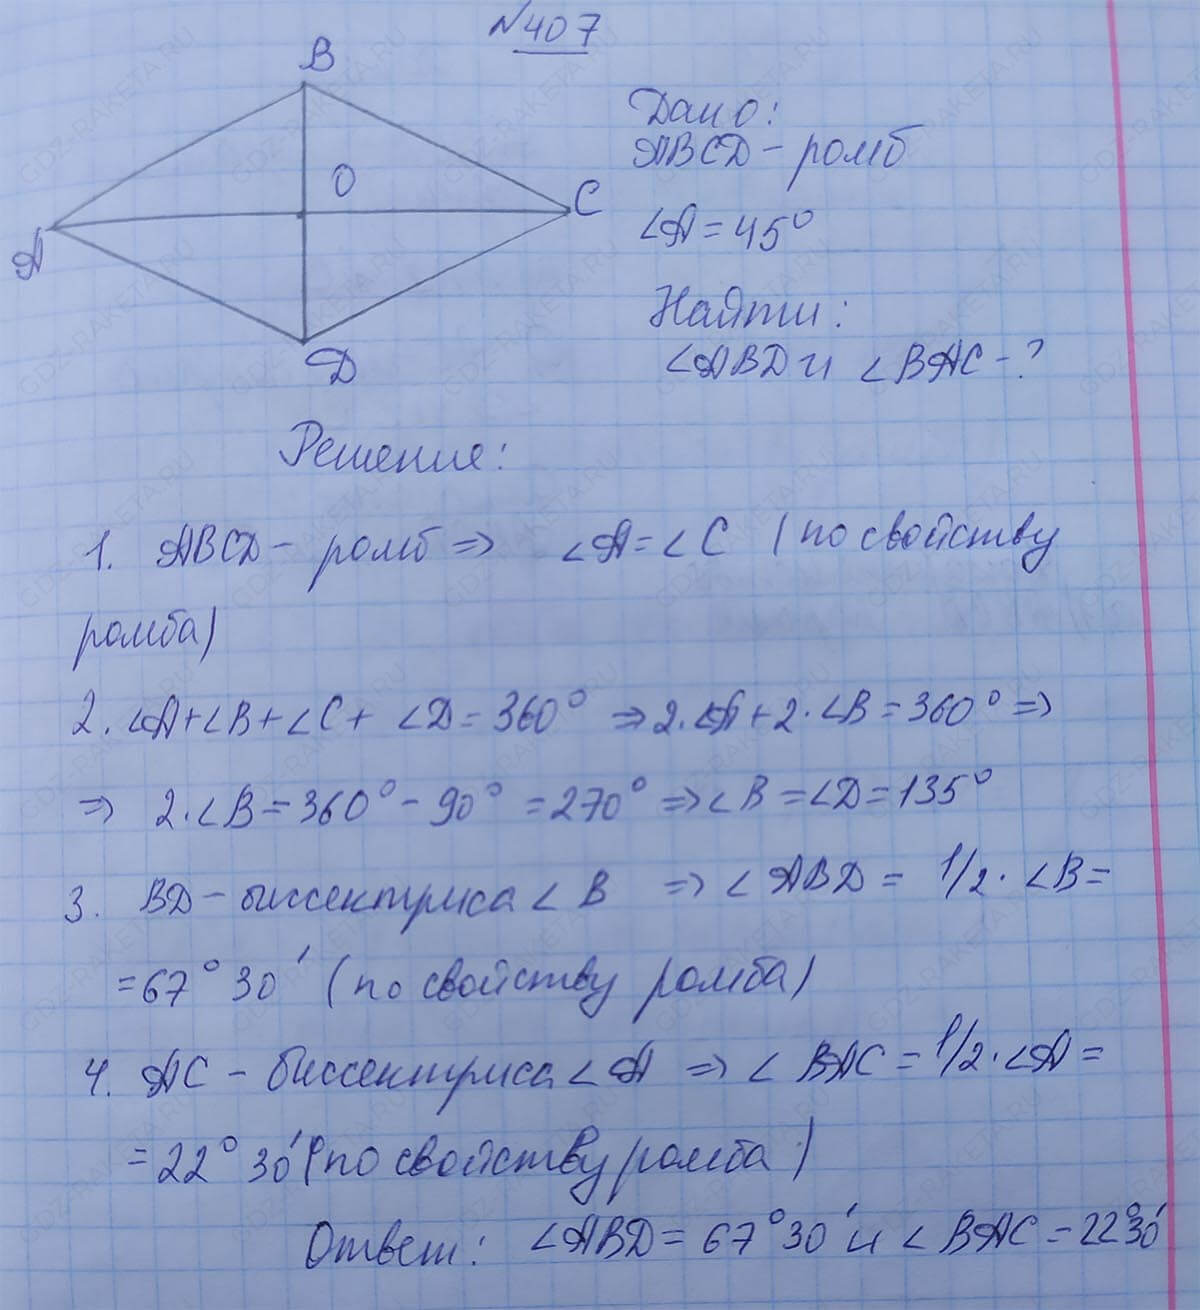 №407
B
O
C
A
D
Дано:
ABCD - ромб
∠A = 45°
Найти:
∠ABD и ∠BAC - ?
Решение:
1. ABCD - ромб => ∠A = ∠C (по свойству
ромба)
2. ∠A + ∠B + ∠C + ∠D = 360° => 2·∠A + 2·∠B = 360° =>
=> 2·∠B = 360° - 90° = 270° => ∠B = ∠D = 135°
3. BD - биссектриса ∠B => ∠ABD = 1/2·∠B =
= 67°30' (по свойству ромба)
4. AC - биссектриса ∠A => ∠BAC = 1/2·∠A =
= 22°30' (по свойству ромба)
Ответ: ∠ABD = 67°30' и ∠BAC = 22°30'
GDZ-RAKETA.RU